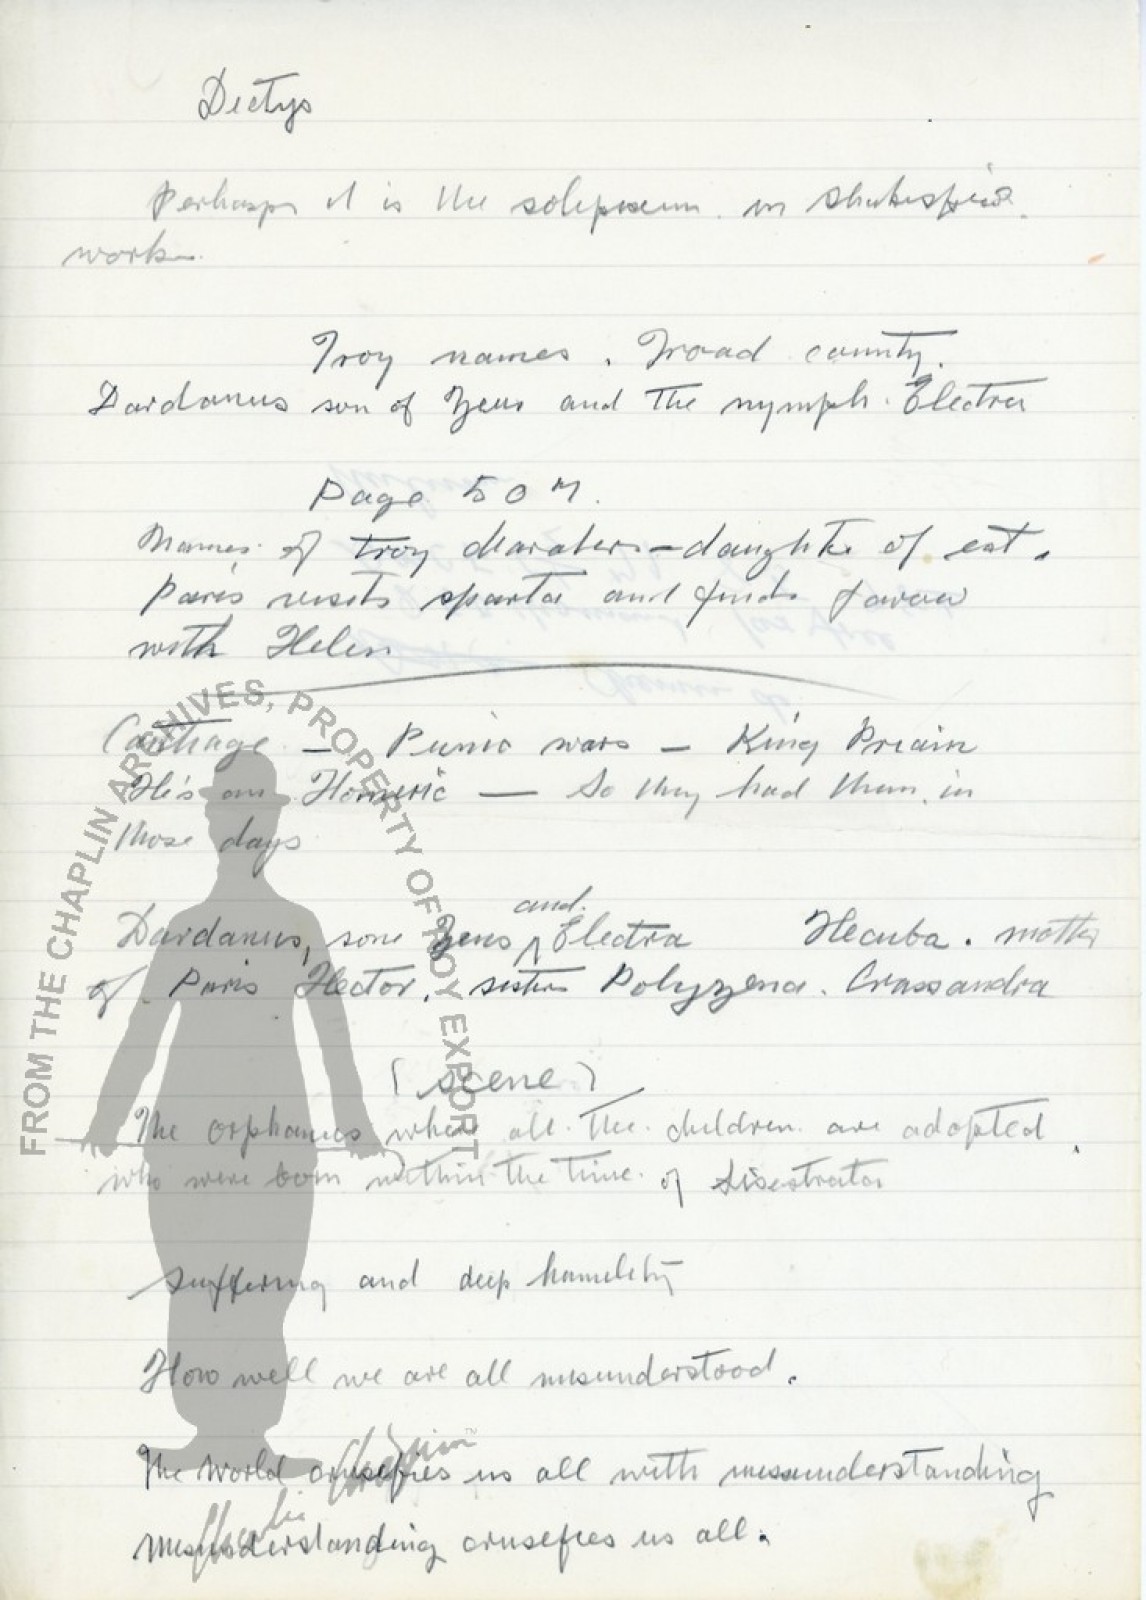 Dictys
Perhaps it is the in
work
Troy names. Troad county.
Dardanus son of Zeus and the nymph. Electra
Page 507.
Names of troy charaters – daughte of eat.
Paris visits sparta and finds favou
with Helen
Carthage – Punic wars – King Priam
He's an Homeric – So they had them in
those days
and
Dardanus, sone Zeus Electra Hecuba. mother
of Paris Hector, sisters Polyzena. Crassandra
(scene)
The where all the children are adopted.
who were born within the time of Sisestrata
suffering and deep humility
How well we are all misunderstood.
The World crusefies us all with missunderstanding
misunderstanding crusefies us all.
FROM THE CHAPLIN ARCHIVES, PROPERTY OF ROY EXPORT
Charlie Chaplin™